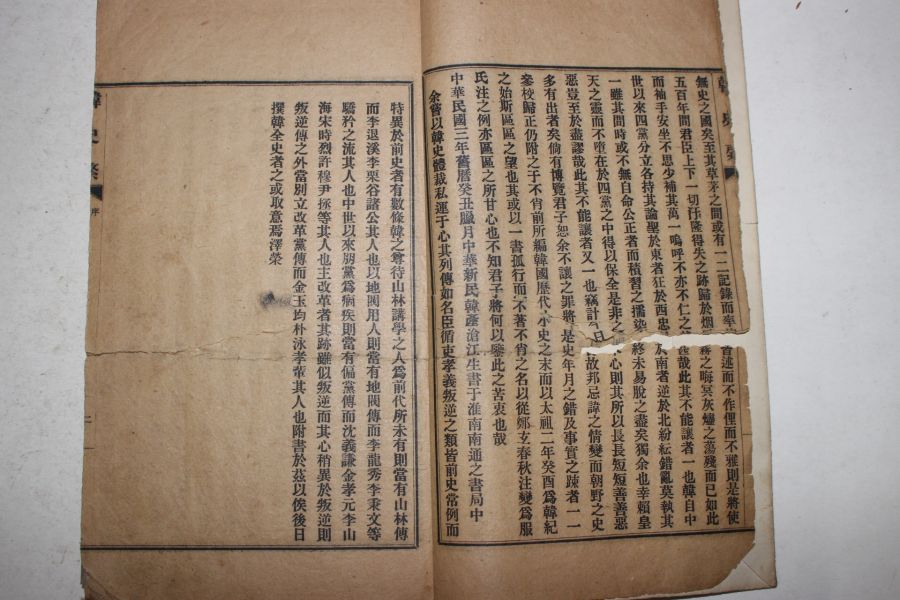 韓史綮
無史之國矣至其草茅之間或有一二記錄而率皆述而不作俚而不雅則是將使
五百年間君臣上下一切汙隆得失之跡歸於烟霧之晦冥灰燼之蕩殘而已如此
而袖手安坐不思少補其萬一嗚呼不亦不仁之甚哉此其不能讓者一也韓自中
世以來四黨分立各持其論聖於東者狂於西忠於南者逆於北紛紜錯亂莫執其
一雖其間時或不無自命公正者而積習之濡染終未易脫之盡矣獨余也幸賴皇
天之靈而不墮在於四黨之中得以保全是非之心則其所以長長短短善善惡
惡豈至於盡謬哉此其不能讓者又一也竊計今日故邦忌諱之情變而朝野之史
多有出者矣倘有博覽君子恕余不讓之罪將是史年月之錯及事實之踈者一一
參校歸正仍附之于不肖前所編韓國歷代小史之末而以太祖二年癸酉為韓紀
之始斯區區之望也其或以一書孤行而不著不肖之名以從鄭玄春秋注變為服
氏注之例亦區區之所甘心也不知君子將何以鑒此之苦衷也哉
中華民國三年舊曆癸丑臘月中華新民韓產滄江生書于淮南南通之書局中
余嘗以韓史體裁私運于心其列傳如名臣循吏孝義叛逆之類皆前史常例而
特異於前史者有數條韓之尊待山林講學之人為前代所未有則當有山林傳
而李退溪李栗谷諸公其人也以地閥用人則當有地閥傳而李龍秀李秉文等
驕矜之流其人也中世以來朋黨為痼疾則當有偏黨傳而沈義謙金孝元李山
海宋時烈許穆尹拯等其人也主改革者其跡雖似叛逆而其心稍異於叛逆則
叛逆傳之外當別立改革黨傳而金玉均朴泳孝輩其人也附書於茲以俟後日
撰韓全史者之或取意焉澤榮
韓史綮
序